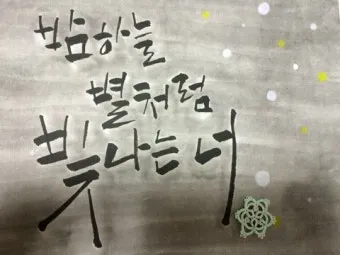 밤하늘
별처럼
빛나는 너